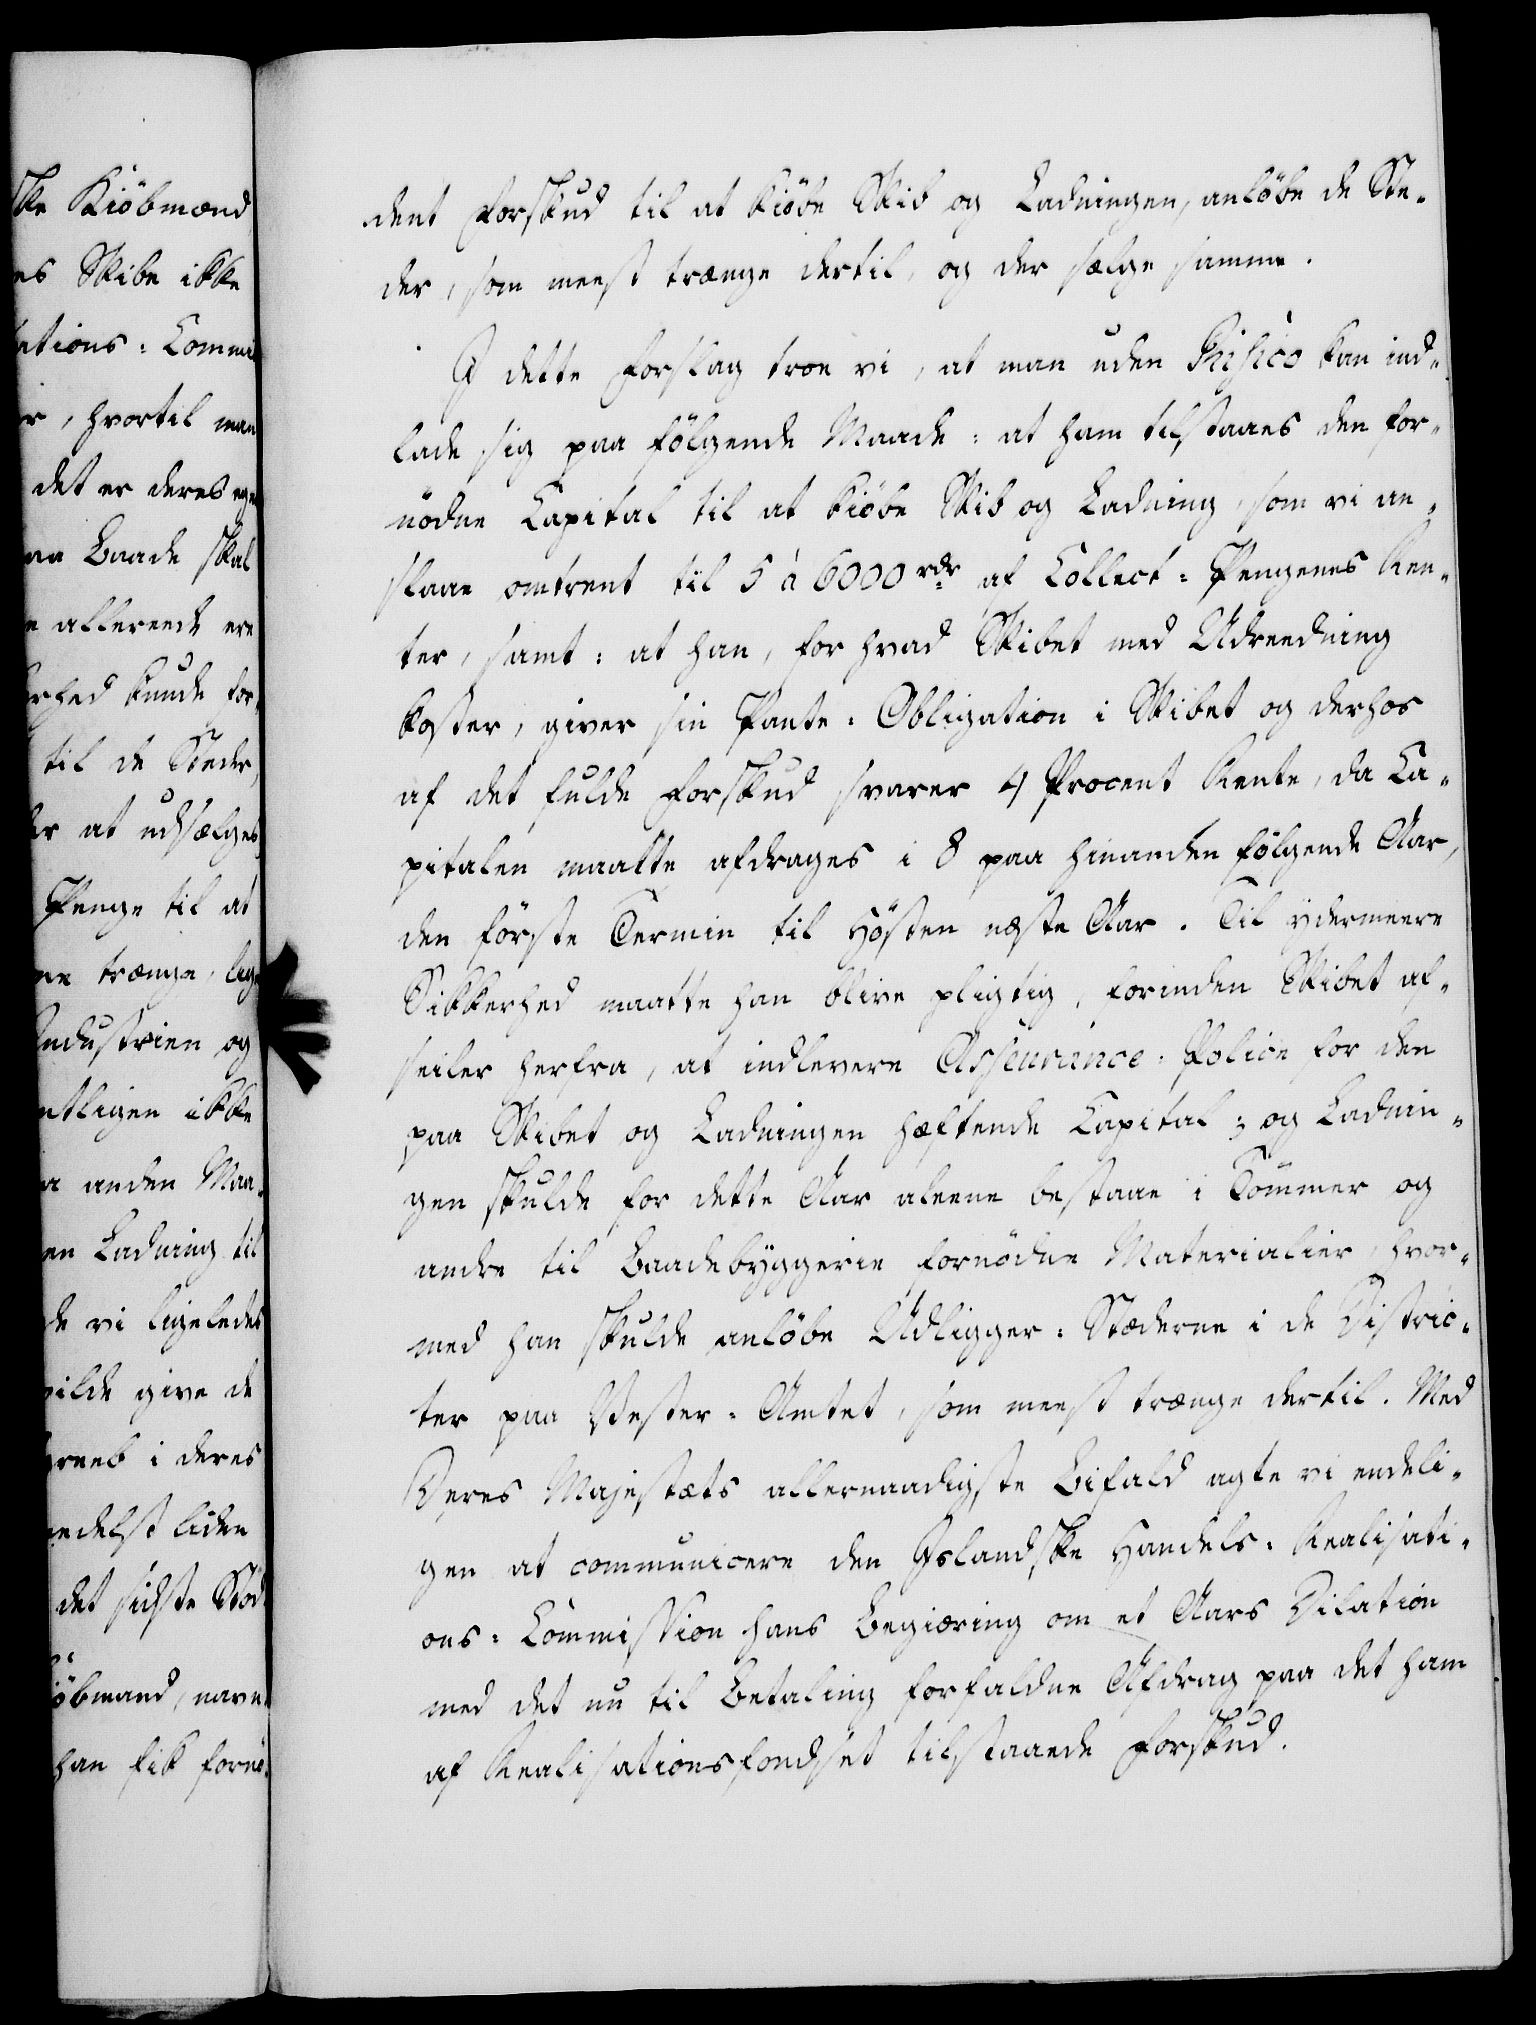 ske Kiöbmænd
es Skibe ikke
ations-Commi
r, hvortil man
det er deres egn
aa Baade skal
e allereede ere
rhed kunde for
til de Steder,
er at udsælges
Penge til at
ne trænge, lag
Industrien og
ntligen ikke
a anden Maa-
en Ladning til
de vi ligeledes
vilde give de
greeb i deres
medelst liden
det sidste Stöd
öbmand, navn-
han fik fornö-
dent Forskud til at kiöbe Skib og Ladningen, anlöbe de Ste-
der, som meest trænge dertil, og der sælge samme.
I dette Forslag troe vi, at man uden Risico kan ind-
lade sig paa fölgende Maade: at ham tilstaaes den for-
nödne Capital til at kiöbe Skib og Ladning, som vi an-
slaae omtrent til 5 à 6000 rdr af Collect-Pengenes Ren-
ter, samt: at han, for hvad Skibet med Udreedning
koster, giver sin Pante-Obligation i Skibet og derhos
af det fulde Forskud svarer 4 Procent Rente, da Ca-
pitalen maatte afdrages i 8 paa hinanden fölgende Aar,
den förste Termin til Hösten næste Aar. Til ydermeere
Sikkerhed maatte han blive pligtig, forinden Skibet af-
seiler herfra, at indlevere Assecurance-Police for den
paa Skibet og Ladningen hæftende Capital; og Ladnin-
gen skulde for dette Aar aleene bestaae i Tömmer og
andre til Baadebyggerie fornödne Materialier, hvor-
med han skulde anlöbe Udligger-Stæderne i de Distric-
ter paa Vester-Amtet, som meest trænge dertil. Med
Deres Majestæts allernaadigste Bifald agte vi endeli-
gen at communicere den Islandske Handels-Realisati-
ons-Commission hans Begiæring om et Aars Dilation
med det nu til Betaling forfaldne Afdrag paa det ham
af Realisationsfondset tilstaaede Forskud.